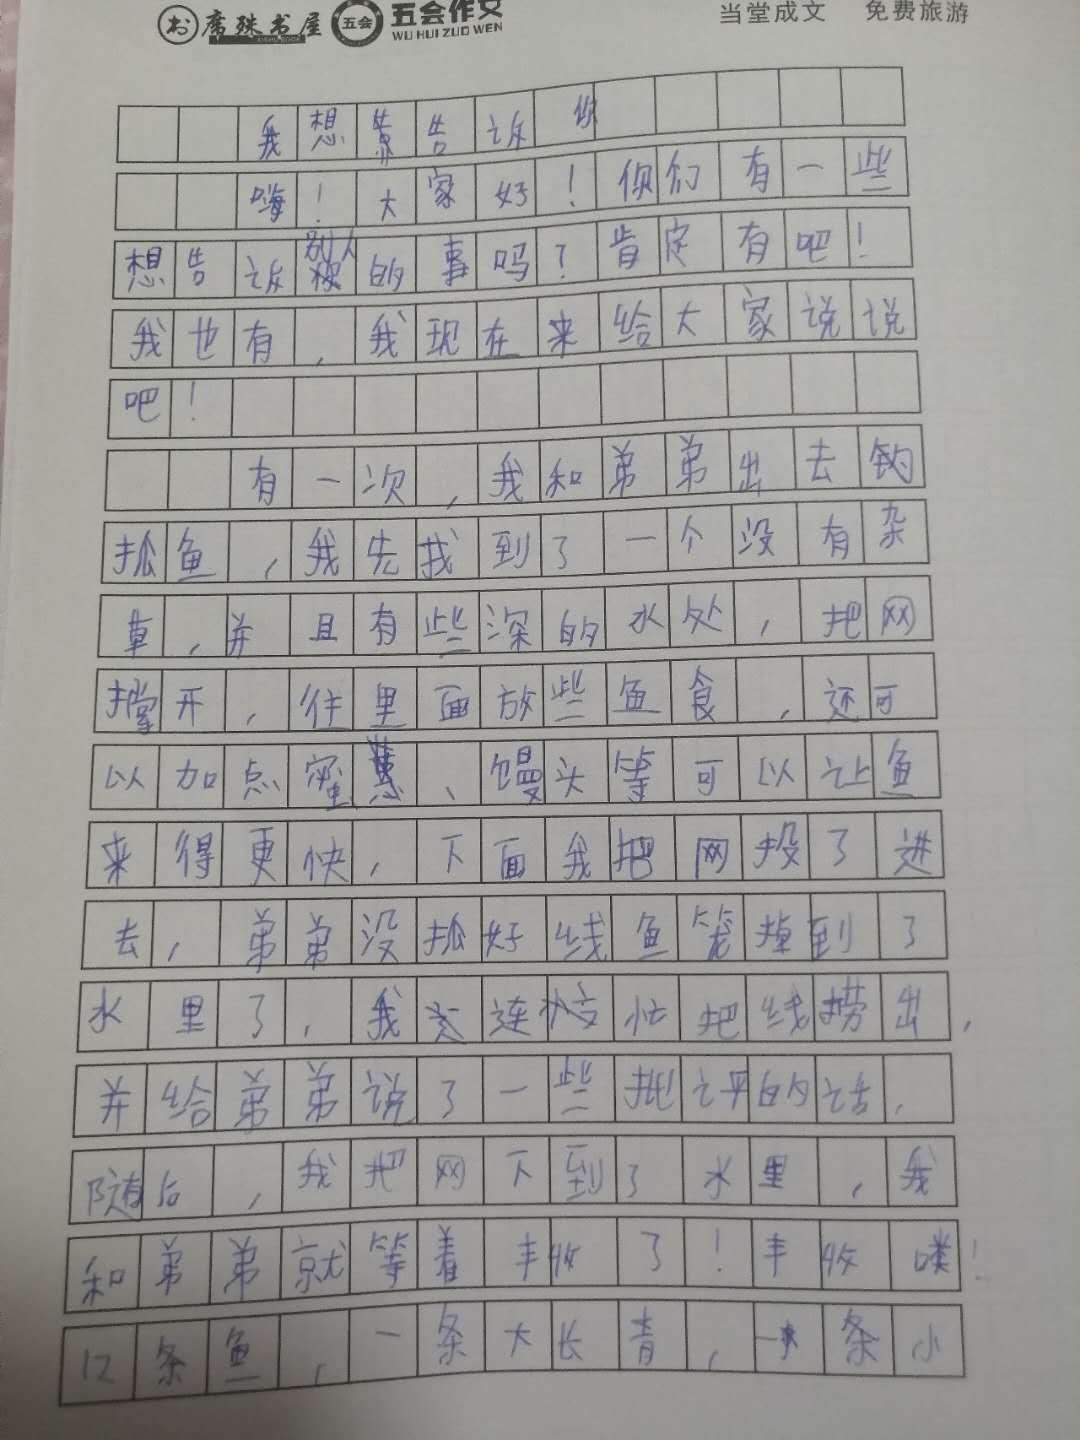 席殊书屋 五会 五会作文 WU HUI ZUO WEN 当堂成文 免费旅游
我想禁告诉你
嗨！大家好！你们有一些
想告诉别人的事吗？肯定有吧！
我也有，我现在来给大家说说
吧！
有一次，我和弟弟出去钓
抓鱼，我先找到了一个没有杂
草，并且有些深的水处，把网
撑开，往里面放些鱼食，还可
以加点、馒头等可以让鱼
来得更快，下面我把网投了进
去，弟弟没抓好线鱼笼掉到了
水里了，我连忙把线捞出，
并给弟弟说了一些批评的话，
随后，我把网下到了水里，我
和弟弟就等着丰收了！丰收喽！
12条鱼，一条大长青，一条小